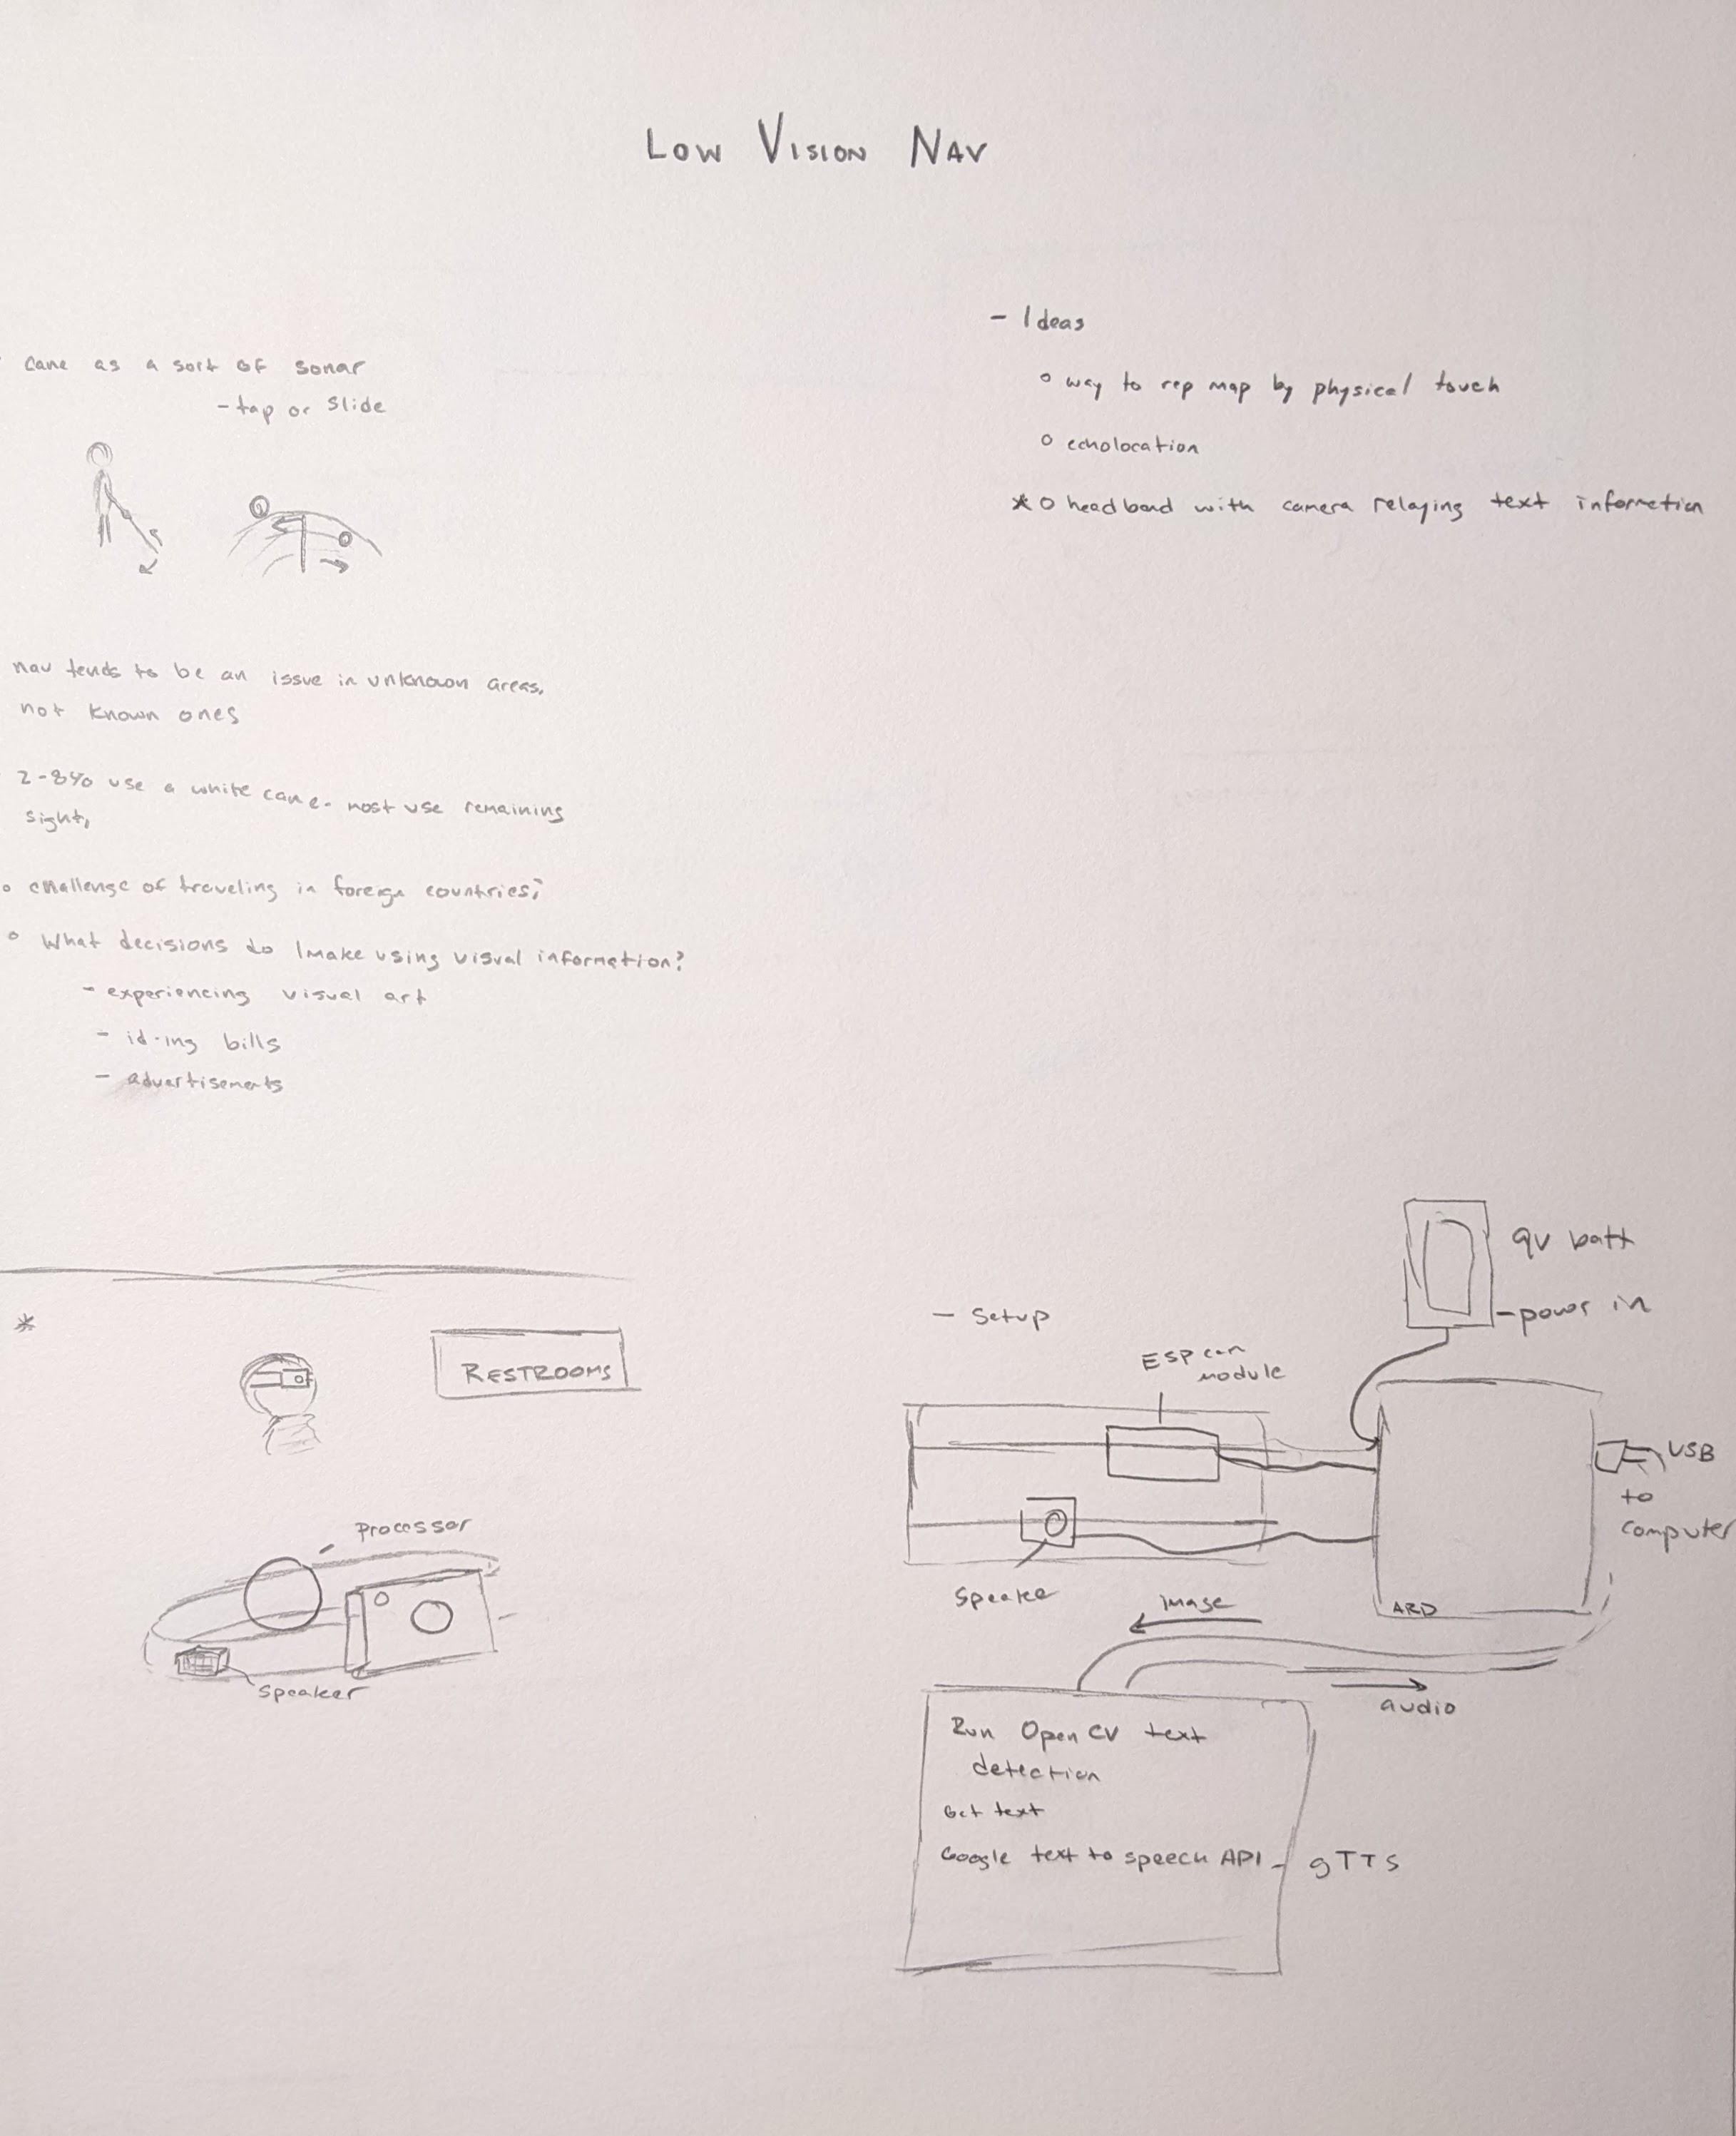 LOW VISION NAV
cane as a sort of sonar
- tap or slide
nav tends to be an issue in unknown areas,
not known ones
2-8% use a white cane. most use remaining
sight,
o challenge of traveling in foreign countries;
o What decisions do I make using visual information?
- experiencing visual art
- id-ing bills
- advertisements
- Ideas
o way to rep map by physical touch
o echolocation
* o headband with camera relaying text information
*
RESTROOMS
Processor
Speaker
- Setup
9V batt
- power in
ESP cam
module
USB
to
computer
Speaker
ARD
image
audio
Run Open CV text
detection
Get text
Google text to speech API - gTTS